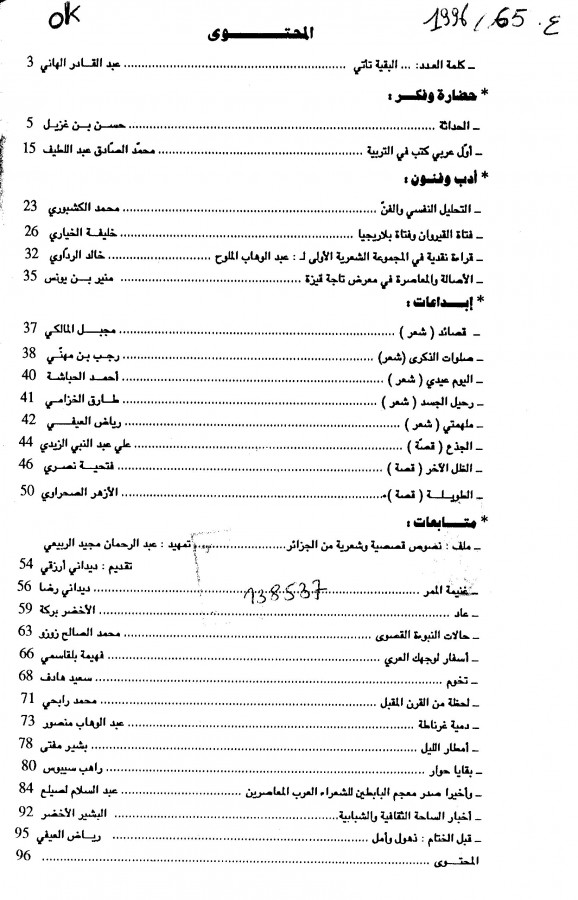 ok
ع. 65 / 1996
المحتـــوى
ـ كلمة العدد: ... البقية تأتي ........ عبد القادر الهاني 3
* حضارة وفكـر :
ـ الحداثة ........ حسـن بـن غزيـل 5
ـ أوّل عربي كتب في التربية ........ محمّد الصّادق عبد اللطيف 15
* أدب وفنـون :
ـ التحليل النفسي والفنّ ........ محمد الكشبوري 23
ـ فتاة القيروان وفتاة بلاريجيا ........ خليفـة الخياري 26
ـ قراءة نقدية في المجموعة الشعرية الأولى لـ : عبد الوهاب الملوح ........ خالد الردّاوي 32
ـ الأصالة والمعاصرة في معرض تاجة قيزة ........ منير بـن يونس 35
* إبـداعات :
ـ قصائد ( شعر ) ........ مجبـل المالكي 37
ـ صلوات الذكرى (شعر) ........ رجـب بن مهنّي 38
ـ اليوم عيدي ( شعر ) ........ أحمـد الحباشة 40
ـ رحيل الجسد ( شعر ) ........ طـارق الخزامـي 41
ـ ملهمتي ( شعر ) ........ رياض العيفـي 42
ـ الجذع ( قصّة ) ........ علي عبد النبي الزيدي 44
ـ الظل الآخر ( قصة ) ........ فتحيـة نصـري 46
ـ الطويلـة ( قصة ) ........ الأزهر الصحراوي 50
* متـابعات :
ـ ملف : نصوص قصصية وشعرية من الجزائر ........ تمهيد : عبد الرحمان مجيد الربيعي
تقديم : ديداني أرزقي 54
ـ غنيمة الممر ........ ديداني رضا 56
138537
ـ عاد ........ الأخضر بركة 59
ـ حالات النبوءة القصوى ........ محمد الصالح زوزو 63
ـ أسفار لوجهك العري ........ فهيمة بلقاسمي 66
ـ تخوم ........ سعيد هادف 68
ـ لحظة من القرن المقبل ........ محمد رابحي 71
ـ دمية غرناطة ........ عبد الوهاب منصور 73
ـ أمطار الليل ........ بشير مفتى 78
ـ بقايا حوار ........ راهب سيبوس 80
ـ وأخيرا صدر معجم البابطين للشعراء العرب المعاصرين ........ عبد السلام لصيلع 84
ـ أخبار الساحة الثقافية والشبابية ........ البشير الأخضر 92
ـ قبل الختام : ذهول وأمل ........ رياض العيفي 95
المحتـوى ........ 96